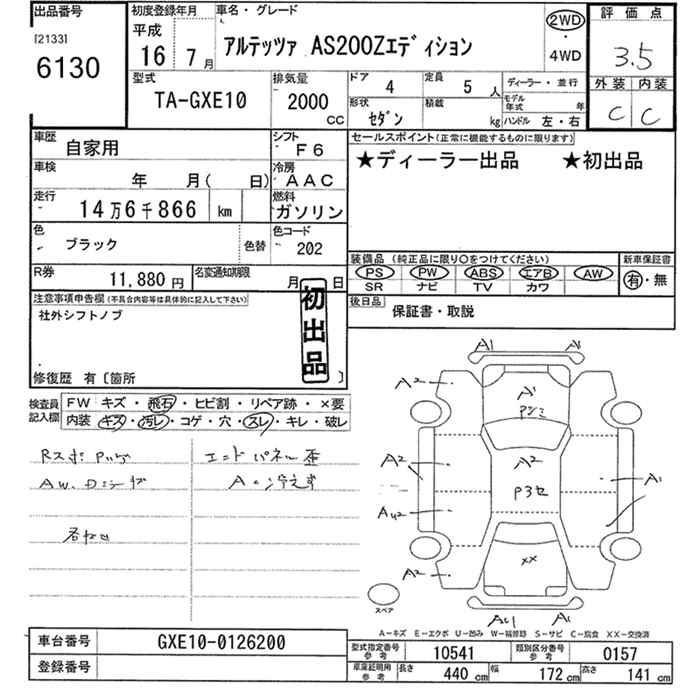 出品番号
[2133]
6130
初度登録年月
平成
16 7月
車名・グレード
アルテッツァ AS200Zエディション
2WD
・
4WD
評価点
3.5
外装 内装
C C
型式
TA-GXE10
排気量
2000
CC
ドア
4
定員
5人
形状
セダン
積載
kg
ディーラー・並行
モデル年式 年
ハンドル 左・右
車歴
自家用
シフト
F6
車検
年 月( 日)
冷房
AAC
走行
14万6千866 km
燃料
ガソリン
色
ブラック
色替
色コード
202
R券
11,880円
名変通知期限
月 日
セールスポイント(正常に機能するものに限ります)
★ディーラー出品 ★初出品
装備品(純正品に限り○をつけてください)
PS PW ABS エアB AW
SR ナビ TV カワ
新車保証書
有・無
後日品
保証書・取説
注意事項申告欄(不具合内容等は具体的に記入して下さい)
社外シフトノブ
初出品
修復歴 有〔箇所 〕
検査員記入欄
FW キズ・飛石・ヒビ割・リペア跡・×要
内装 キズ・汚レ・コゲ・穴・スレ・キレ・破レ
エンドパネル歪
A1
A1
A2
A1
A2
A2
P3セ
A1
A2
××
A2
AU1
A1
スペア
A－キズ E－エクボ U－凹み W－補修跡 S－サビ C－腐食 XX－交換済
車台番号
GXE10-0126200
登録番号
型式指定番号
参考
10541
類別区分番号
参考
0157
車庫証明用
参考
長さ
440 cm
幅
172 cm
高さ
141 cm